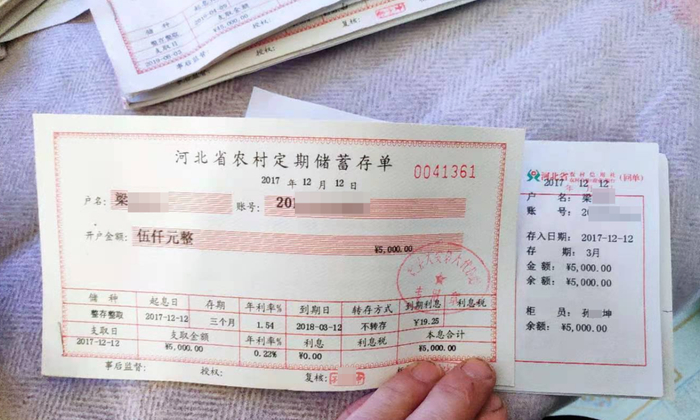 种
整存整取
支取日
2019-06-03
2019-04-09
支取金额
¥45,000.00
事后监督:
授权:
复核:
河北省农村定期储蓄存单
2017 年 12 月 12 日
0041361
户名: 梁
账号: 201
开户金额: 伍仟元整
¥5,000.00
储 种 起息日 存期 年利率% 到期日 转存方式 到期利息 利息税
整存整取 2017-12-12 三个月 1.54 2018-03-12 不转存 ¥19.25
支取日 支取金额 年利率% 利息 利息税 本息合计
2017-12-12 ¥5,000.00 0.23% ¥0.00 ¥5,000.00
事后监督: 授权: 复核:
河北省 (回单)
2017 12 12
户 名: 梁
账 号: 20
存入日期: 2017-12-12
存 期: 3月
金 额: ¥5,000.00
余 额: ¥5,000.00
柜 员: 孙 坤
余额: ¥5,000.00